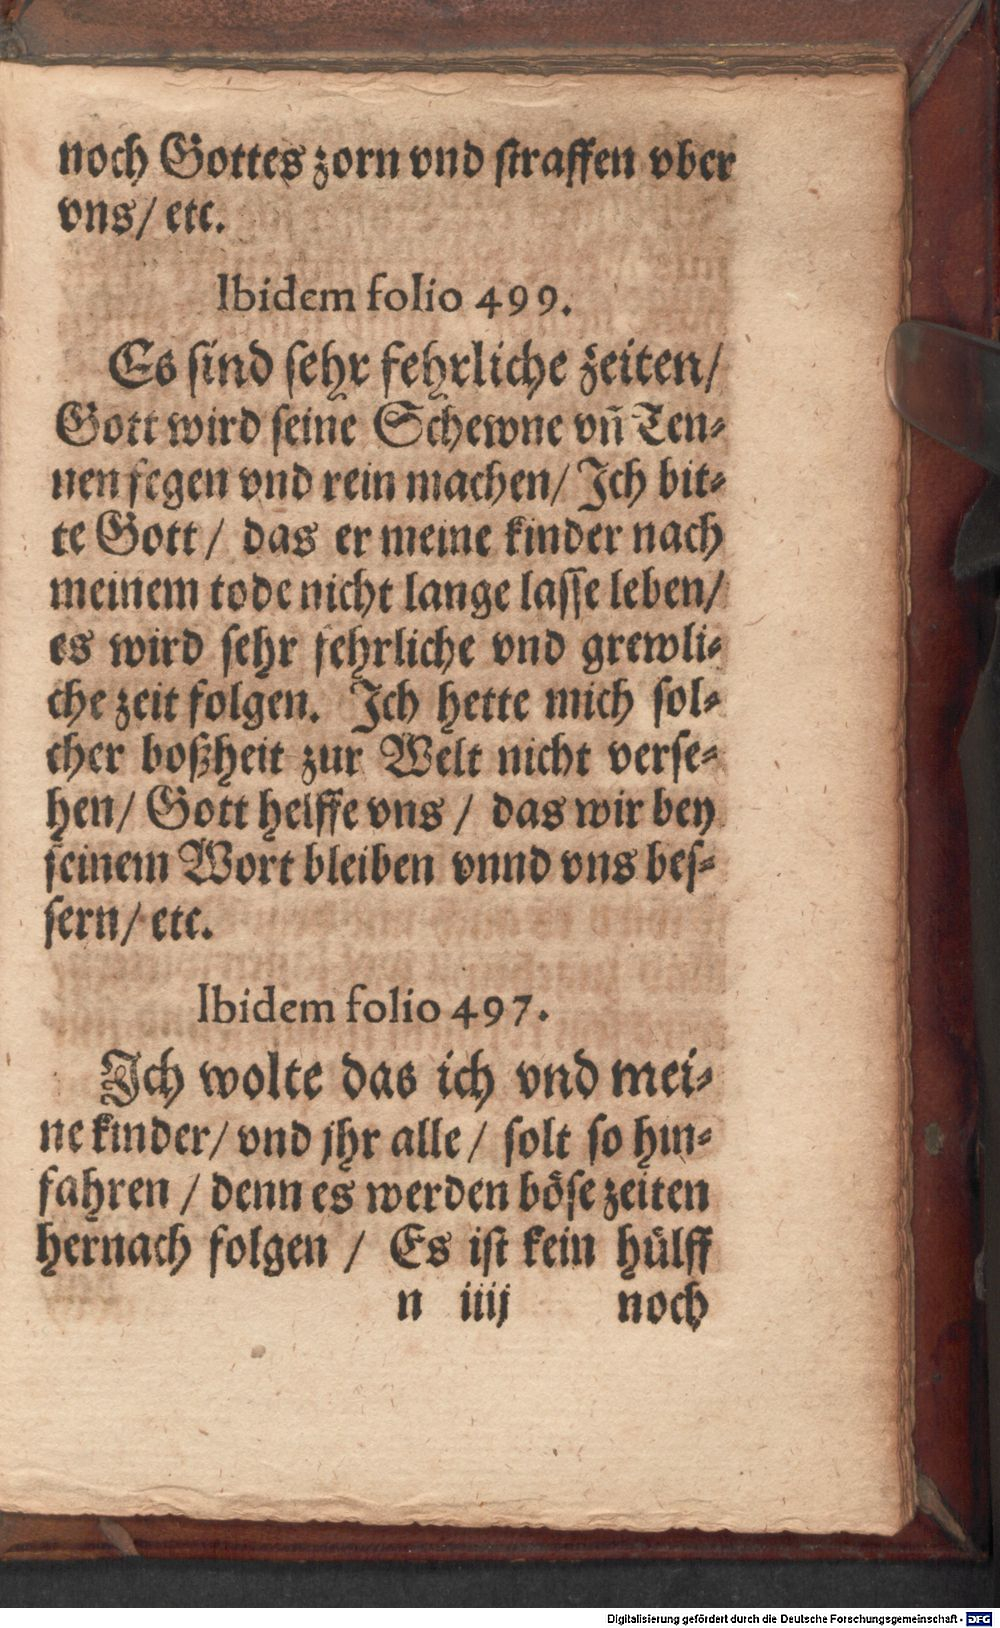 noch Gottes zorn vnd straffen vber
vns/ etc.
Ibidem folio 499.
Es sind sehr fehrliche zeiten/
Gott wird seine Schewne vñ Ten-
nen fegen vnd rein machen/ Jch bit-
te Gott/ das er meine kinder nach
meinem tode nicht lange lasse leben/
es wird sehr fehrliche vnd grewli-
che zeit folgen. Jch hette mich sol-
cher boßheit zur Welt nicht verse-
hen/ Gott helffe vns / das wir bey
seinem Wort bleiben vnnd vns bes-
sern/ etc.
Ibidem folio 497.
Jch wolte das ich vnd mei-
ne kinder/ vnd jhr alle/ solt so hin-
fahren / denn es werden böse zeiten
hernach folgen / Es ist kein hülff
n iiij noch
Digitalisierung gefördert durch die Deutsche Forschungsgemeinschaft - DFG